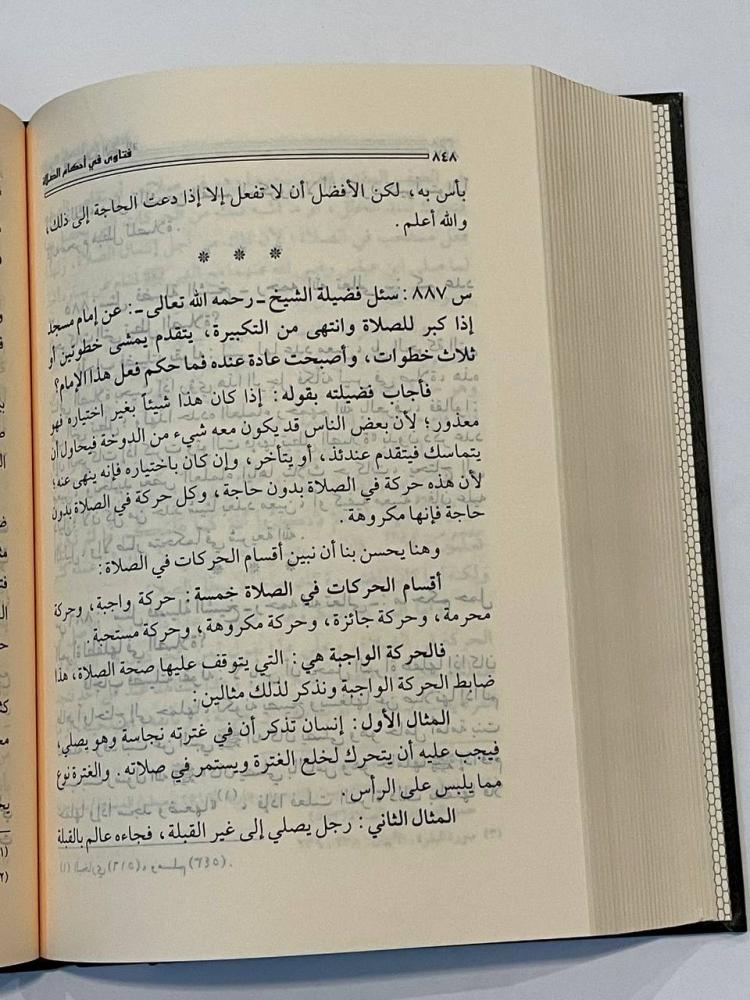 ٨٤٧
فتاوى في أحكام الصلاة
بأس به، لكن الأفضل أن لا تفعل إلا إذا دعت الحاجة إلى ذلك،
والله أعلم.
* * *
س ٨٨٧: سئل فضيلة الشيخ ـ رحمه الله تعالى ـ: عن إمام مسجد
إذا كبر للصلاة وانتهى من التكبيرة، يتقدم يمشى خطوتين أو
ثلاث خطوات، وأصبحت عادة عنده فما حكم فعل هذا الإمام؟
فأجاب فضيلته بقوله: إذا كان هذا شيئاً بغير اختياره فهو
معذور؛ لأن بعض الناس قد يكون معه شيء من الدوخة فيحاول أن
يتماسك فيتقدم عندئذ، أو يتأخر، وإن كان باختياره فإنه ينهى عنه؛
لأن هذه حركة في الصلاة بدون حاجة، وكل حركة في الصلاة بدون
حاجة فإنها مكروهة.
وهنا يحسن بنا أن نبين أقسام الحركات في الصلاة:
أقسام الحركات في الصلاة خمسة: حركة واجبة، وحركة
محرمة، وحركة جائزة، وحركة مكروهة، وحركة مستحبة.
فالحركة الواجبة هي: التي يتوقف عليها صحة الصلاة، هذا
ضابط الحركة الواجبة ونذكر لذلك مثالين:
المثال الأول: إنسان تذكر أن في غترته نجاسة وهو يصلي،
فيجب عليه أن يتحرك لخلع الغترة ويستمر في صلاته. والغترة نوع
مما يلبس على الرأس.
المثال الثاني: رجل يصلي إلى غير القبلة، فجاءه عالم بالقبلة